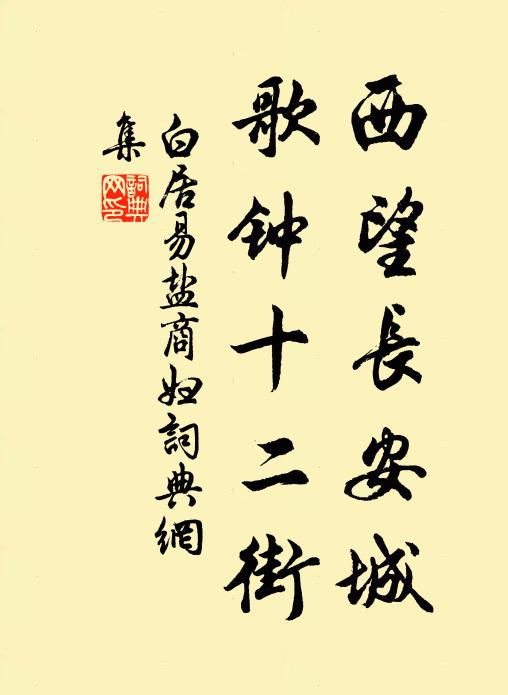 西望長安城
歌钟十二街
白居易盐商妇詞典網
集
詞典网印